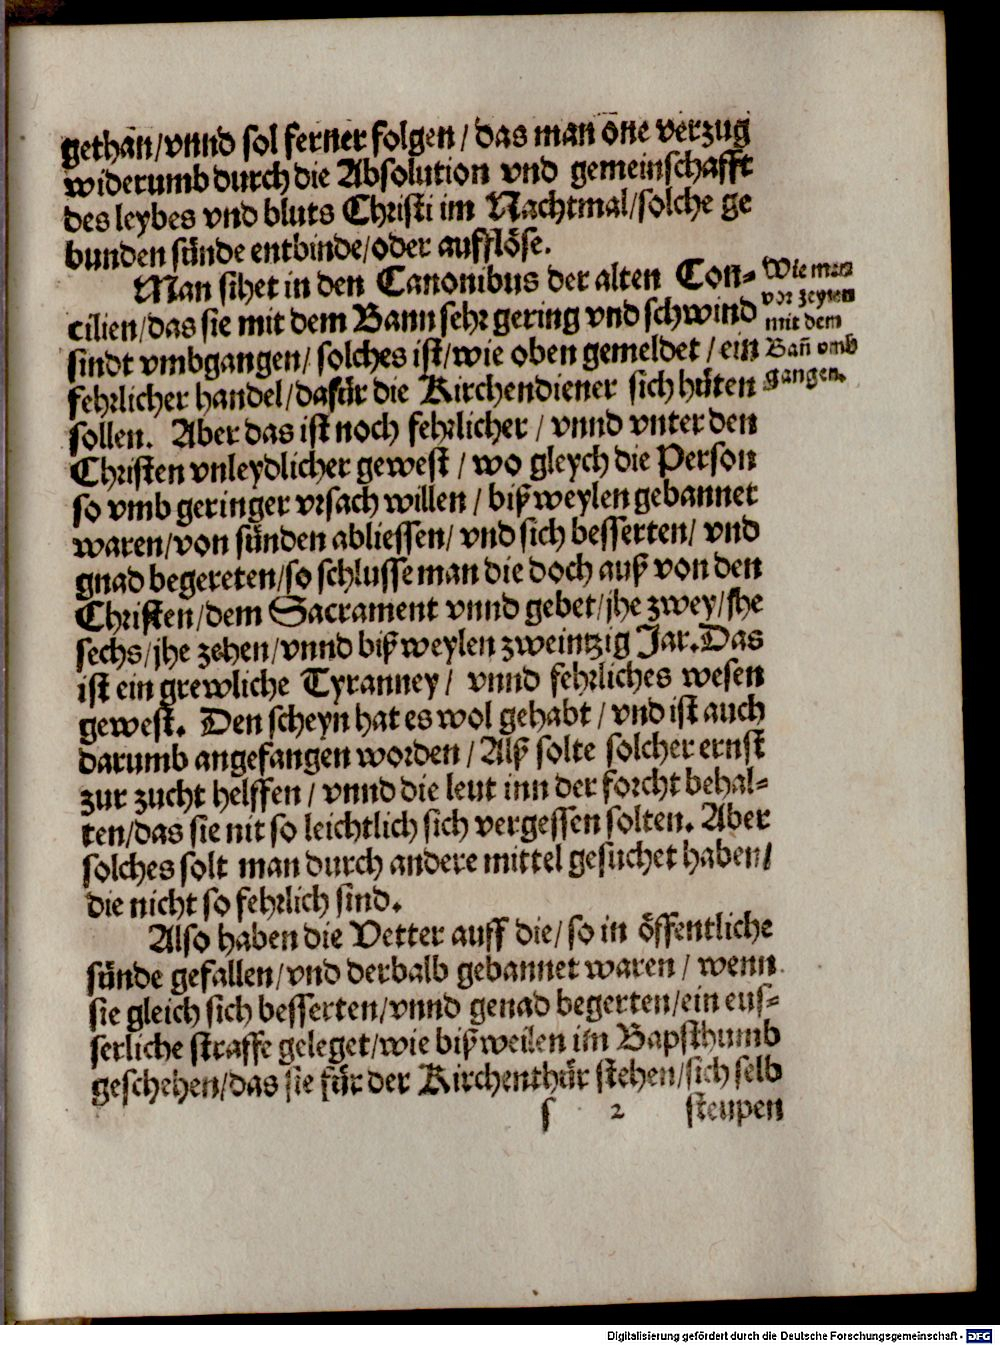 gethan/vnnd sol ferner folgen/ das man one verzug
widerumb durch die Absolution vnd gemeinschafft
des leybes vnd bluts Christi im Nachtmal/solche ge
bunden sünde entbinde/oder aufflöse.
Man sihet in den Canonibus der alten Con-
cilien/das sie mit dem Bann sehr gering vnd schwind
sindt vmbgangen/ solches ist/wie oben gemeldet/ ein
fehrlicher handel/dafür die Kirchendiener sich hüten
sollen. Aber das ist noch fehrlicher/ vnnd vnter den
Christen vnleydlicher gewest/ wo gleych die Person
so vmb geringer vrsach willen/ bißweylen gebannet
waren/von sünden abliessen/ vnd sich besserten/ vnd
gnad begereten/so schlusse man die doch auß von den
Christen/dem Sacrament vnnd gebet/jhe zwey/jhe
sechs/jhe zehen/vnnd bißweylen zweintzig Jar. Das
ist ein grewliche Tyranney/ vnnd fehrliches wesen
gewest. Den scheyn hat es wol gehabt/ vnd ist auch
darumb angefangen worden/ Alß solte solcher ernst
zur zucht helffen/ vnnd die leut inn der forcht behal-
ten/das sie nit so leichtlich sich vergessen solten. Aber
solches solt man durch andere mittel gesuchet haben/
die nicht so fehrlich sind.
Also haben die Vetter auff die/ so in öffentliche
sünde gefallen/vnd derhalb gebannet waren/ wenn
sie gleich sich besserten/vnnd genad begerten/ein eus-
serliche straffe geleget/wie bißweilen im Bapsthumb
geschehen/das sie für der Kirchenthür stehen/sich selb
s 2 steupen
Wie man
vor zeyten
mit dem
Bañ vmb
gangen.
Digitalisierung gefördert durch die Deutsche Forschungsgemeinschaft - DFG